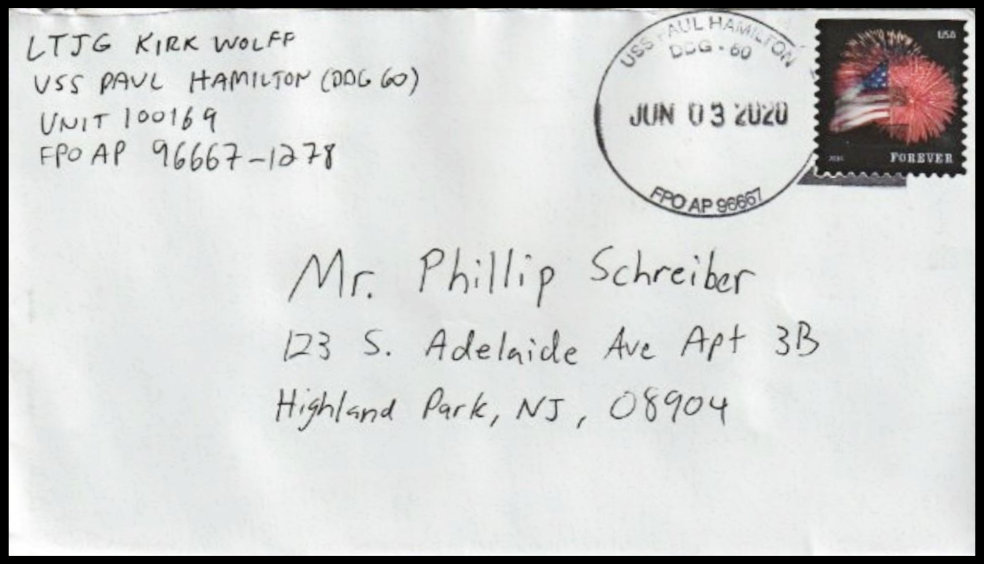 LTJG KIRK WOLFF
USS PAUL HAMILTON (DDG 60)
UNIT 100169
FPO AP 96667-1278
USS PAUL HAMILTON
DDG - 60
JUN 03 2020
FPO AP 96667
USA
FOREVER
Mr. Phillip Schreiber
123 S. Adelaide Ave Apt 3B
Highland Park, NJ, 08904